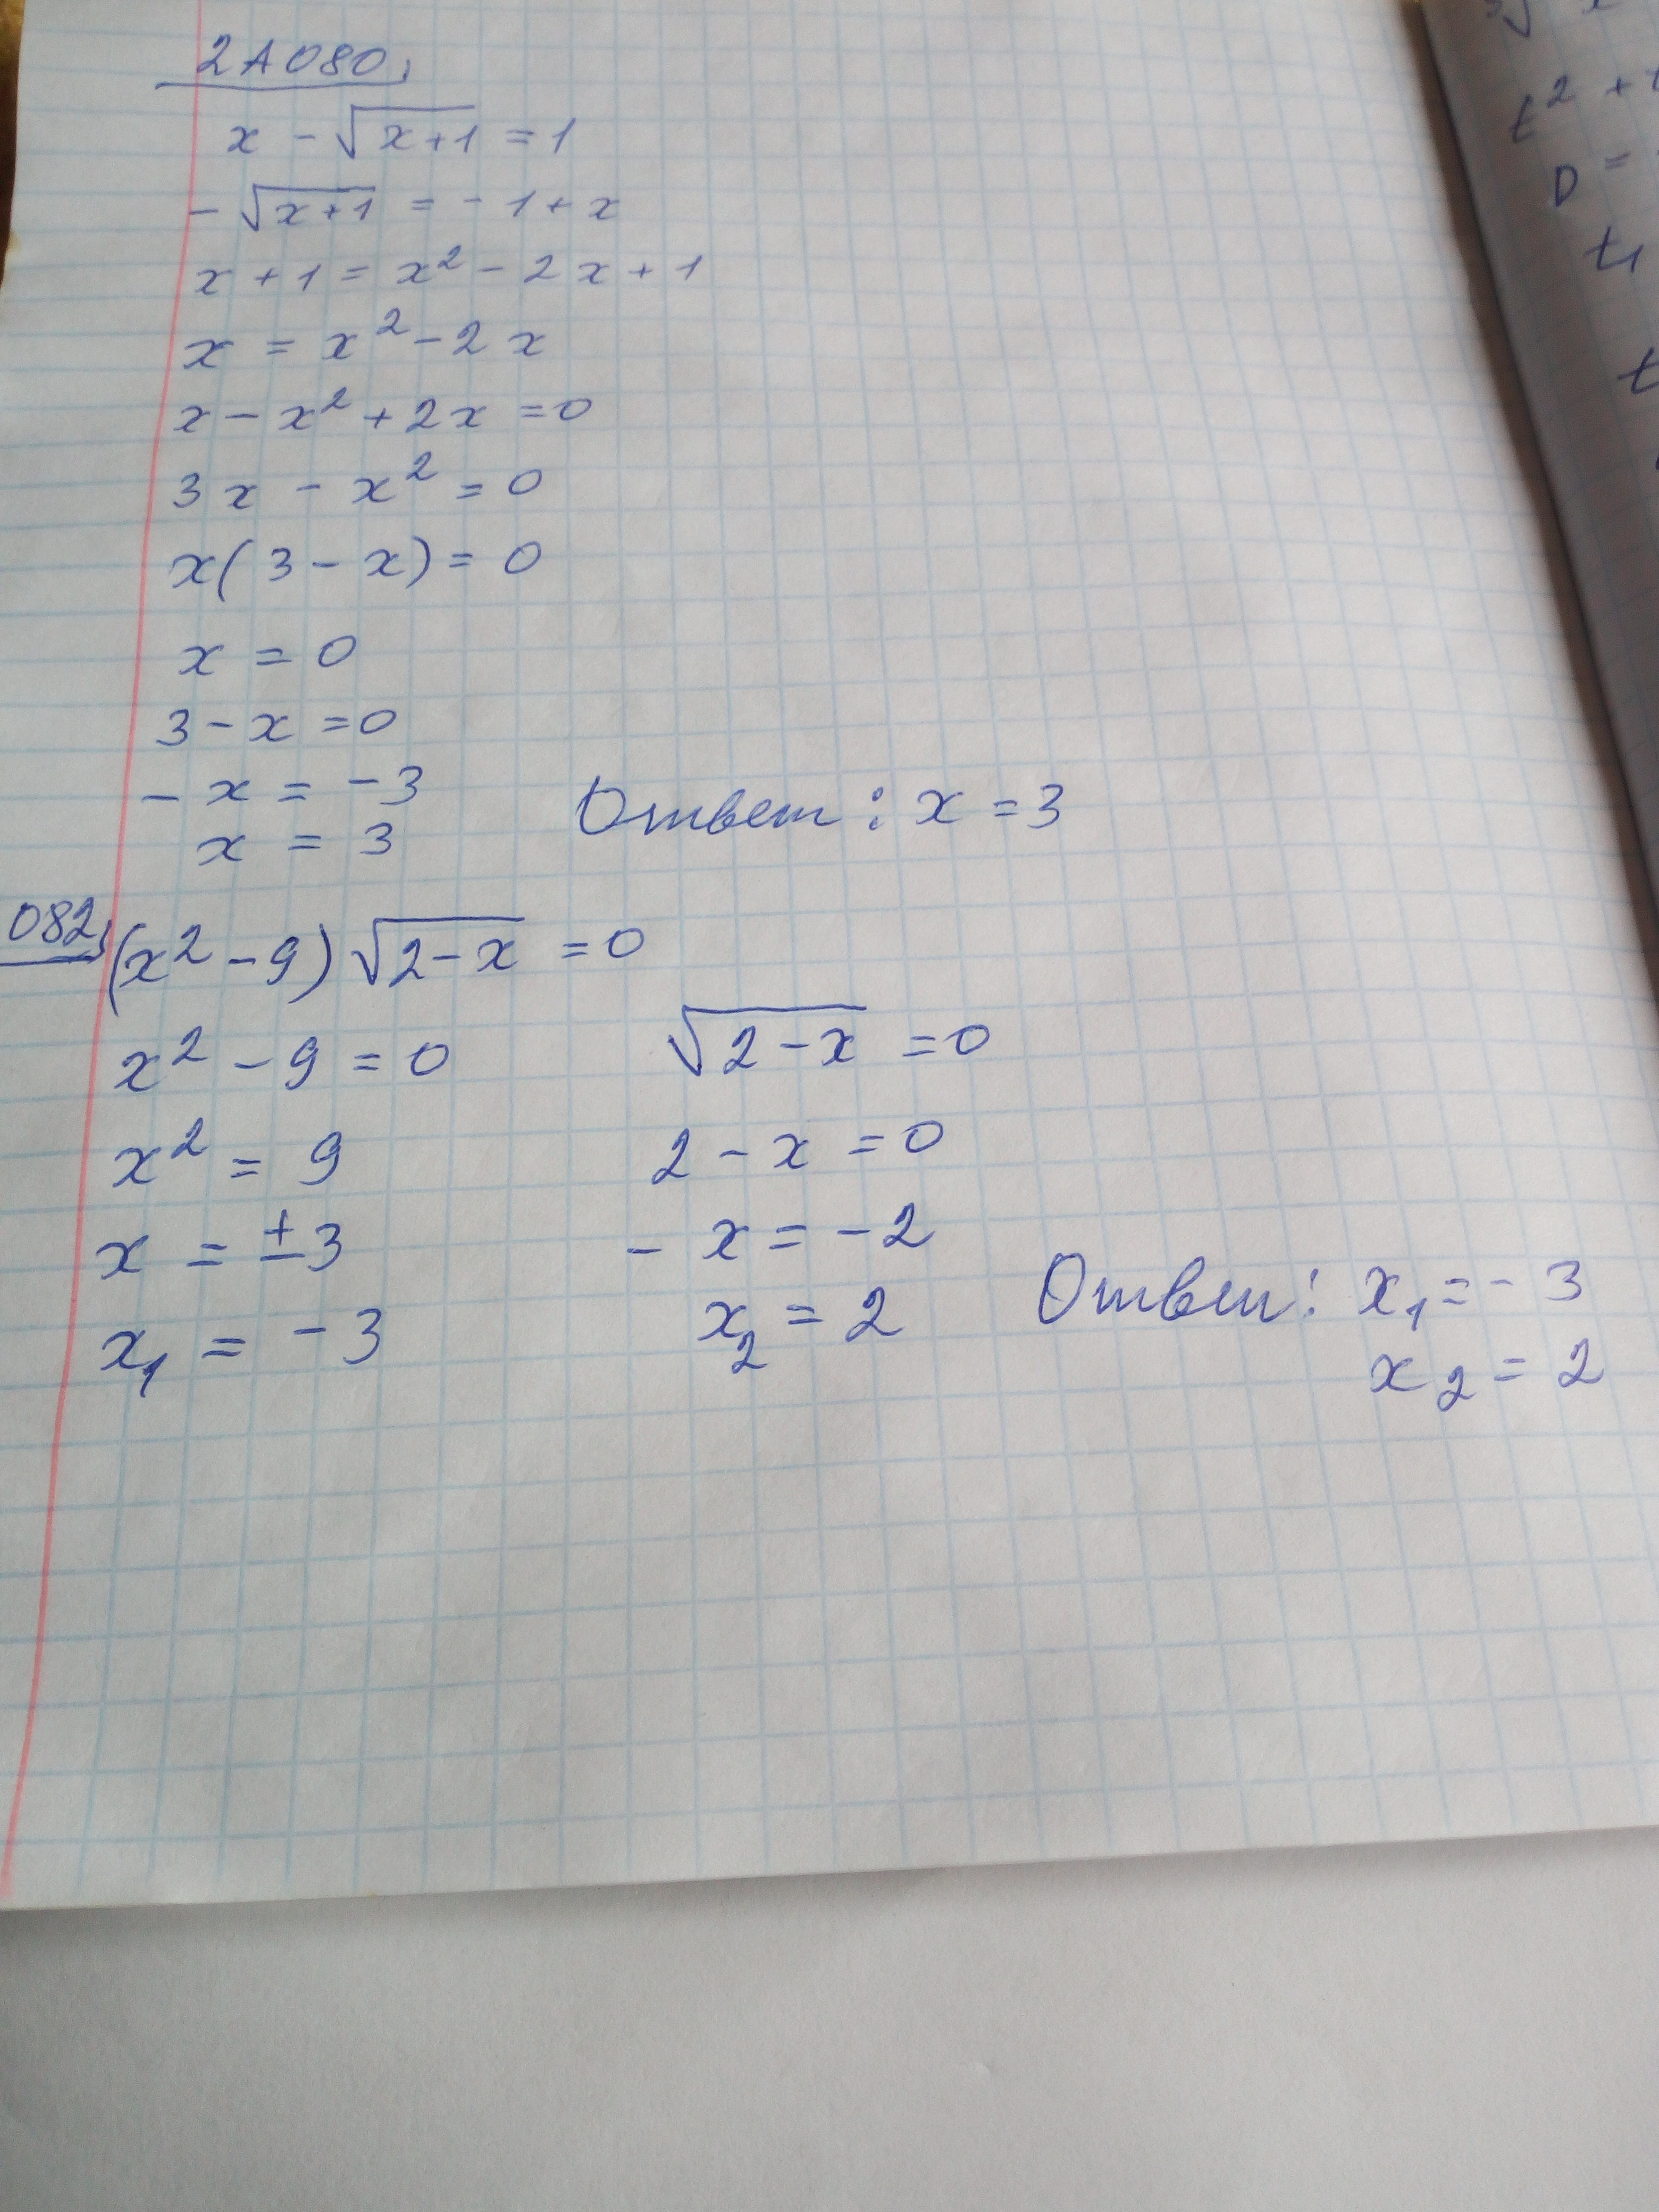 2A080,
x - √(x+1) = 1
- √(x+1) = - 1 + x
x + 1 = x² - 2x + 1
x = x² - 2x
x - x² + 2x = 0
3x - x² = 0
x(3 - x) = 0
x = 0
3 - x = 0
- x = -3
x = 3
Ответ: x = 3
082,
(x² - 9)√(2-x) = 0
x² - 9 = 0
x² = 9
x = ±3
x₁ = -3
√(2-x) = 0
2 - x = 0
- x = -2
x₂ = 2
Ответ: x₁ = - 3
x₂ = 2
t² +
D =
t₁
t